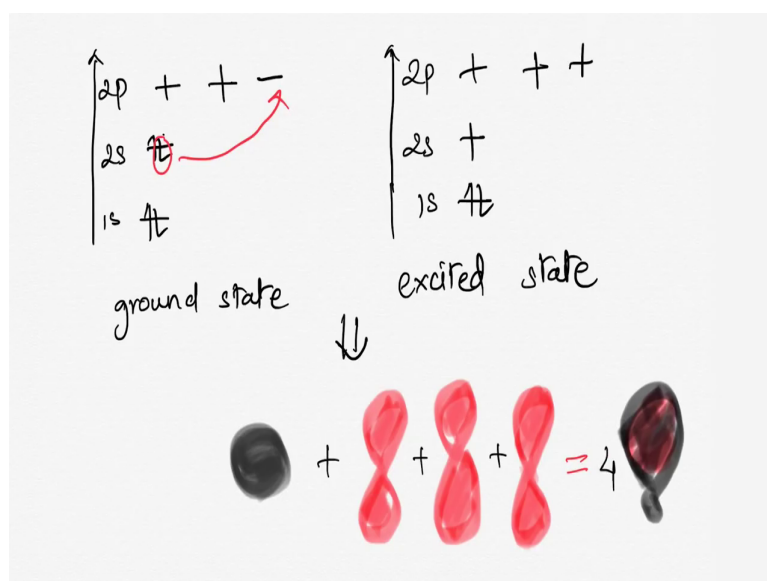 2p + + −
2s ⥮
1s ⥮
ground state
2p + + +
2s +
1s ⥮
excited state
⇓
+ + + = 4